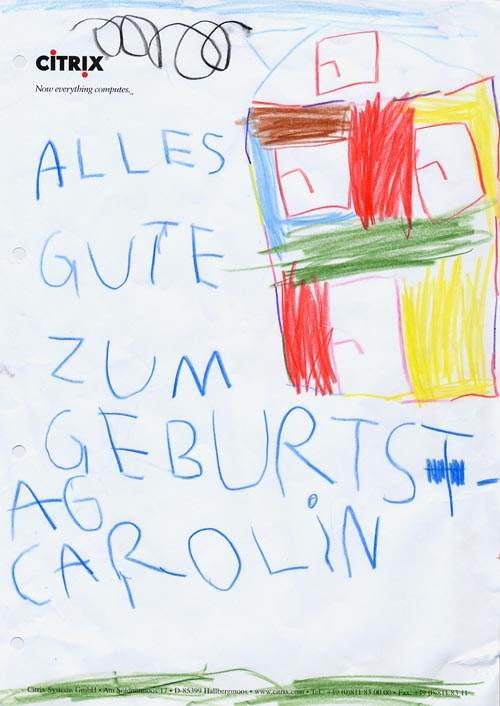 CITRIX
Now everything computes.
ALLES
GUTE
ZUM
GEBURTST-
AG
CAROLIN
Citrix Systems GmbH • Am Söldnermoos 17 • D-85399 Hallbergmoos • www.citrix.com • Tel.: +49 (0)811 83 00 00 • Fax: +49 (0)811 83 11